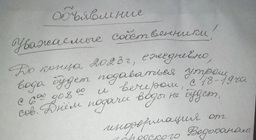 Объявление
Уважаемые собственники!
До конца 2023г, ежедневно,
вода будет подаваться утром
с 6⁰⁰ до 8⁰⁰ и вечером, с 18-19 до
Днём подачи воды не будет.
информация от
Водоканала